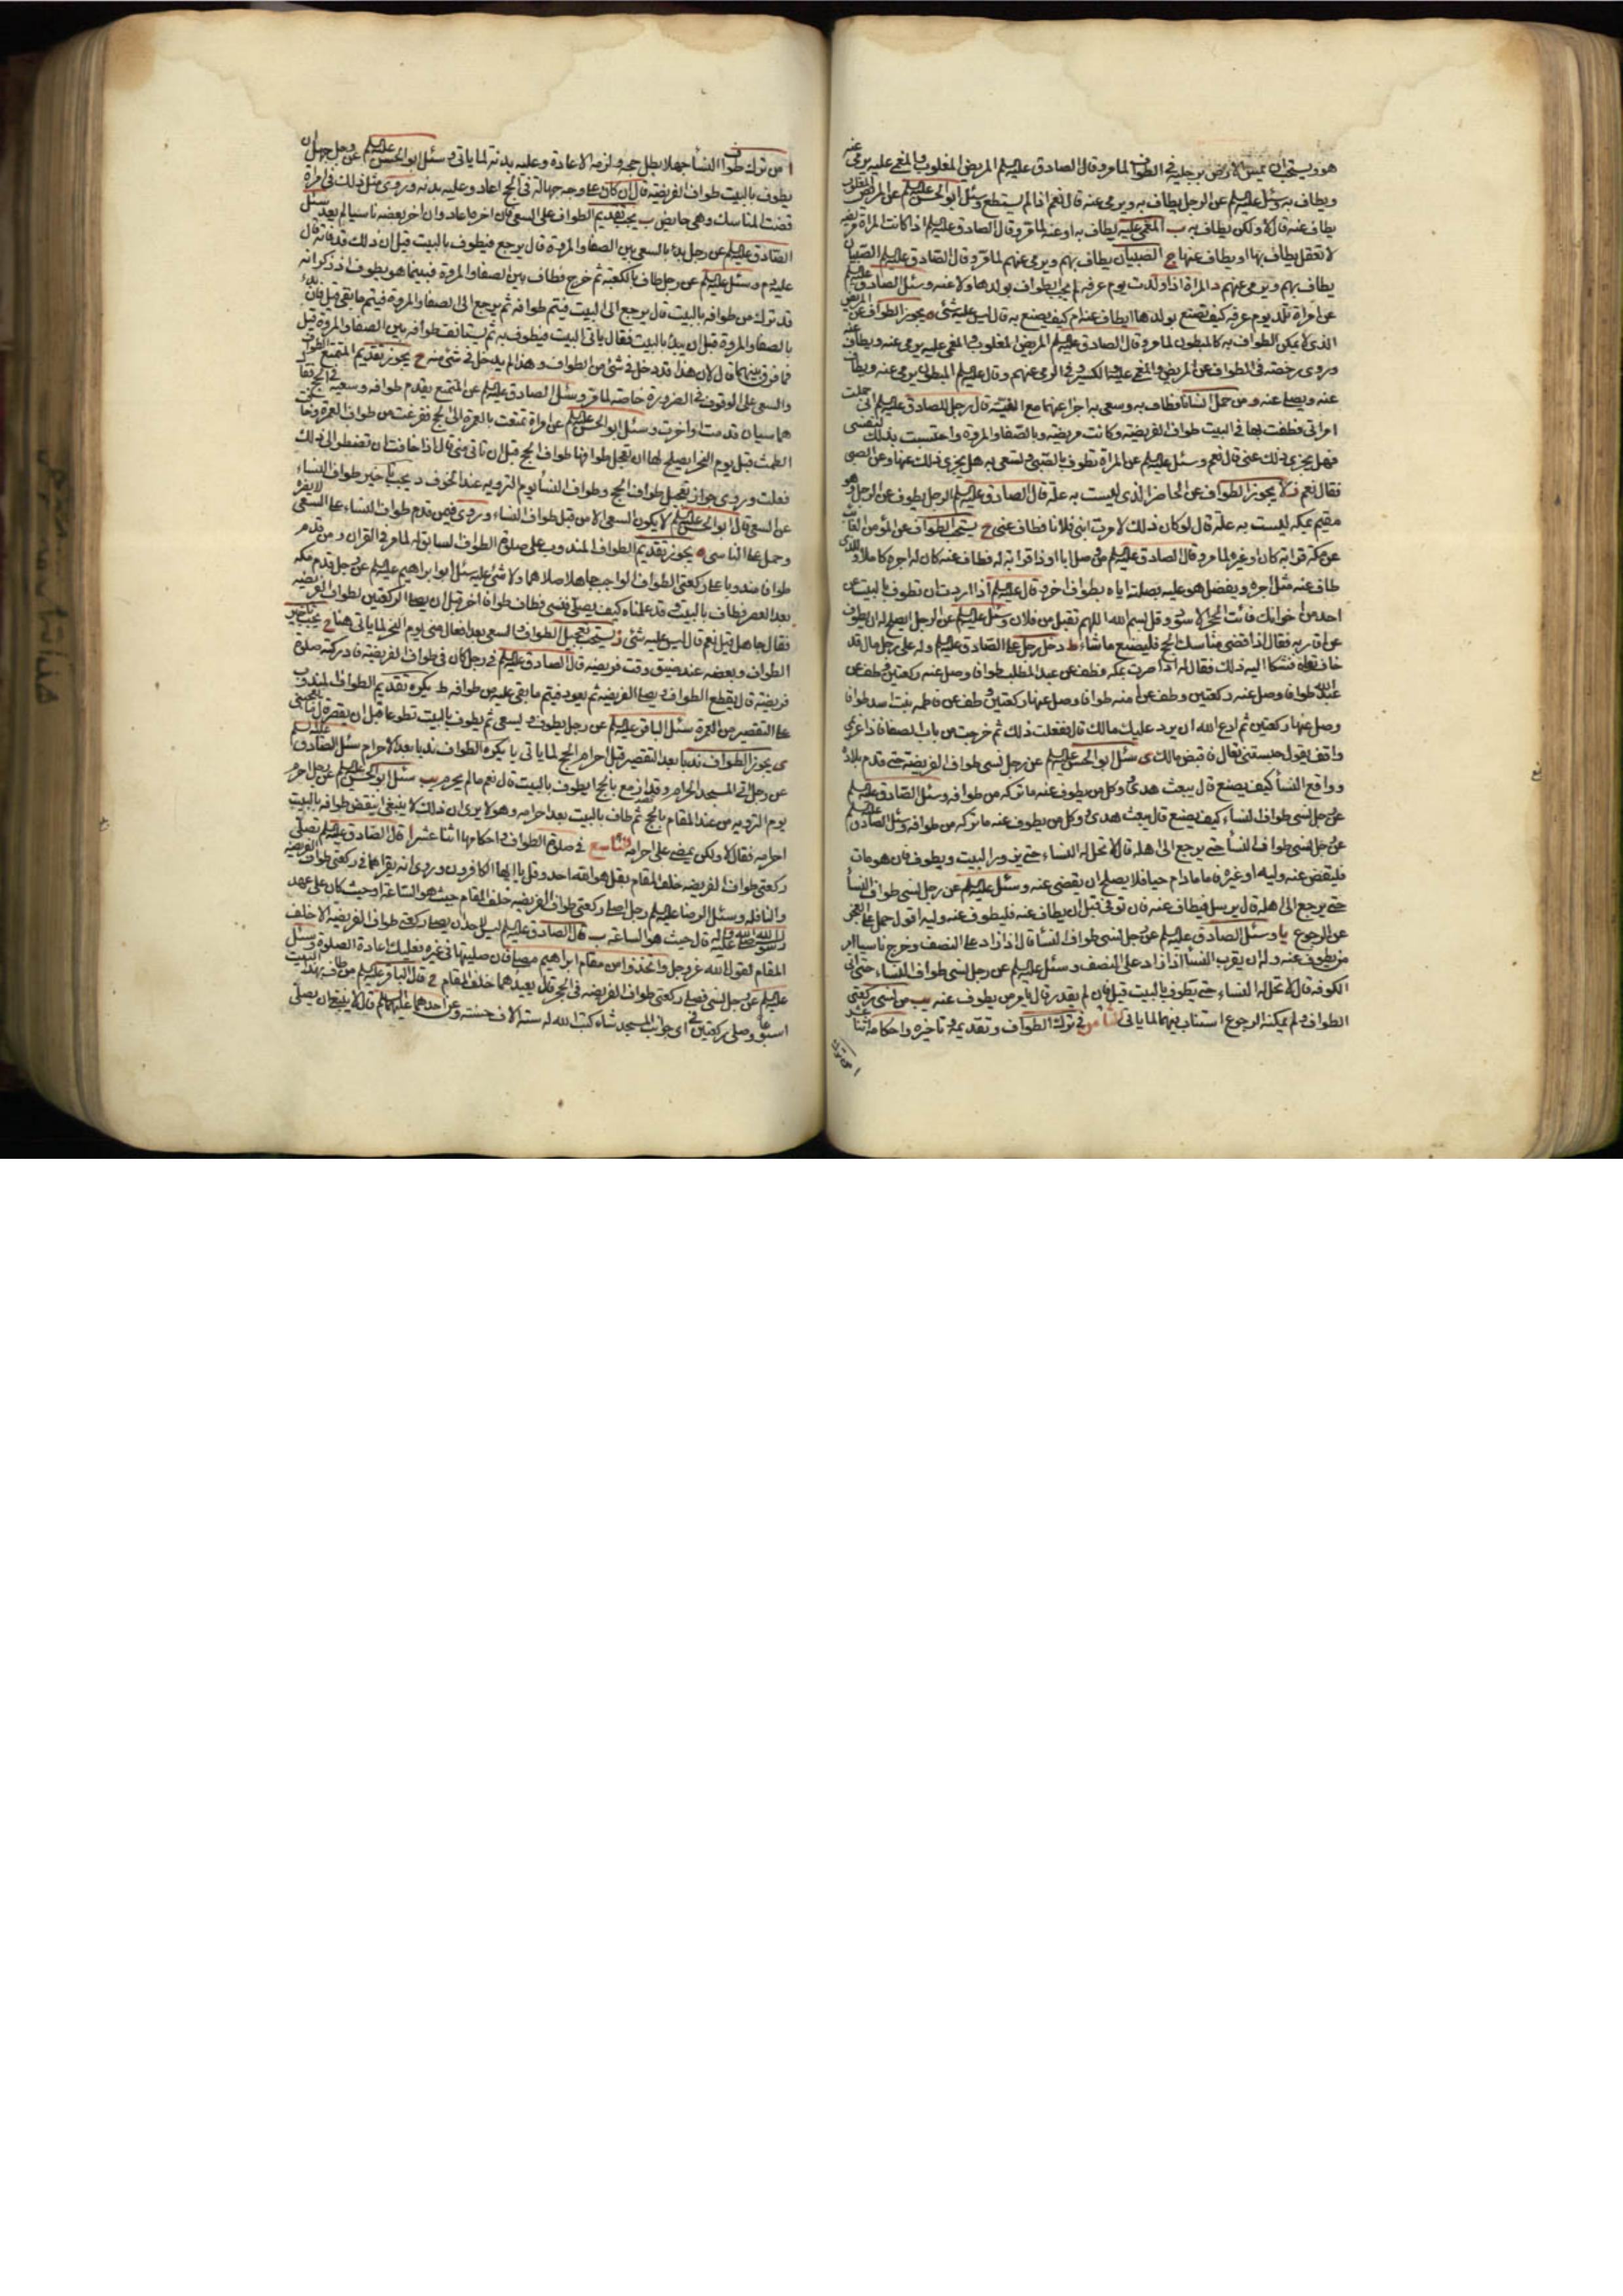 هو ويستحب ان يمس الارض برجليه في الطواف لما مر وقال الصادق عليه السلم المريض المغلوب والمغمى عليه يرمى عنه
ويطاف به وسئل عليه السلم عن الرجل يطاف به ويرمى عنه قال نعم اذا لم يستطع وسئل ابو الحسن عليه السلم عن المريض المغلوب
يطاف عنه قال لا ولكن يطاف به ب المغمى عليه يطاف به او عنه لما مر وقال الصادق عليه السلم اذا كانت المراة مريضة
لا تعقل يطاف بها او يطاف عنها ج الصبيان يطاف بهم ويرمى عنهم لما مر وقال الصادق عليه السلم الصبيان
يطاف بهم ويرمى عنهم د المراة اذا ولدت يوم عرفة لم يجب الطواف بولدها ولا عنه وسئل الصادق عليه السلم
عن امراة تلد يوم عرفة كيف تصنع بولدها ايطاف عنه ام كيف يصنع به قال ليس عليه شئ ه يجوز الطواف عن المريض
الذي لا يمكن الطواف به كالمبطون لما مر وقال الصادق عليه السلم المريض المغلوب والمغمى عليه يرمى عنه ويطاف عنه
وروى رخصة في الطواف عن المريض والمغمى عليه والكسير وفي الرمى عنهم وقال عليه السلم المبطون يرمى عنه ويطاف
عنه ويصلى عنه و من حمل انسانا فطاف به وسعى به اجزا عنهما مع النية قال رجل للصادق عليه السلم انى حملت
امراتى فطفت بها في البيت طواف الفريضة وكانت مريضة وبالصفا والمروة واحتسبت بذلك لنفسى
فهل يجزى ذلك عنى قال نعم وسئل عليه السلم عن المراة تطوف بالصبى وتسعى به هل يجزى ذلك عنها وعن الصبى
فقال نعم ز لا يجوز الطواف عن الحاضر الذي ليست به علة قال الصادق عليه السلم الرجل يطوف عن الرجل وهو
مقيم بمكة ليست به علة قال لو كان ذلك لامرت ابنى فلانا فطاف عنى ح يستحب الطواف عن المؤمن الغائب
عن مكة قرابة كان او غيره لما مر وقال الصادق عليه السلم من وصل ابا او ذا قرابة له فطاف عنه كان له اجره كاملا وللذى
طاف عنه مثل اجره ويفضل هو عليه بصلته اياه بطواف اخر وقال عليه السلم اذا اردت ان تطوف بالبيت عن
احد من اخوانك فائت الحجر الاسود وقل بسم الله اللهم تقبل من فلان وسئل عليه السلم عن الرجل ايصلح له ان يطوف
عن اقاربه فقال اذا قضى مناسك الحج فليصنع ما شاء ط دخل رجل على الصادق عليه السلم وله على رجل مال قد
خاف تواه فشكا اليه ذلك فقال له اذا صرت بمكة فطف عن عبد المطلب طوافا وصل عنه ركعتين وطف عن
عبد الله طوافا وصل عنه ركعتين وطف عن امنة طوافا وصل عنها ركعتين وطف عن فاطمة بنت اسد طوافا
وصل عنها ركعتين ثم ادع الله ان يرد عليك مالك قال ففعلت ذلك ثم خرجت من باب الصفا فاذا غريمى
واقف يقول حبستنى تعال فاقبض مالك ى سئل ابو الحسن عليه السلم عن رجل نسى طواف الفريضة حتى قدم بلاده
وواقع النسأ كيف يصنع قال يبعث هدى وكل من يطوف عنه ما تركه من طوافه وسئل الصادق عليه السلم
عن رجل نسى طواف النسأ كيف يصنع قال يبعث هدى وكل من يطوف عنه ما تركه من طوافه وسئل الصادق عليه السلم
عن رجل نسى طواف النسأ حتى يرجع الى اهله قال لا تحل له النساء حتى يزور البيت ويطوف فان هو مات
فليقض عنه وليه او غيره فاما ما دام حيا فلا يصلح ان يقضى عنه وسئل عليه السلم عن رجل نسى طواف النسأ
حتى يرجع الى اهله قال يرسل فيطاف عنه فان توفى قبل ان يطاف عنه فليطوف عنه وليه اقول حمل على العجز
عن الرجوع يا وسئل الصادق عليه السلم عن رجل نسى طواف النسأ قال اذا زاد على النصف وخرج ناسيا امر
من يطوف عنه وله ان يقرب النسأ اذا زاد على النصف وسئل عليه السلم عن رجل نسى طواف النساء حتى اتى
الكوفة قال لا تحل له النساء حتى يطوف بالبيت قيل فان لم يقدر قال يامر من يطوف عنه يب من نسى ركعتى
الطواف ولم يمكنه الرجوع استناب فيهما لما ياتى الثامن في ترك الطواف وتقديمه وتاخيره واحكامه اثنا عشر
ا من ترك
ا من ترك طواف النسأ جهلا بطل حجه ولزمه الاعادة وعليه بدنة لما ياتى وسئل ابو الحسن عليه السلم عن رجل جهل ان
يطوف بالبيت طواف الفريضة قال ان كان على وجه جهالة في الحج اعاد وعليه بدنة وروى مثل ذلك في امراة
قضت المناسك وهى حايض ب يجب تقديم الطواف على السعى فان اخره اعاد وان اخر بعضه ناسيا لم يعد سئل
الصادق عليه السلم عن رجل بدا بالسعى بين الصفا والمروة قال يرجع فيطوف بالبيت قيل ان ذلك قد فاته قال
عليه دم وسئل عليه السلم عن رجل طاف بالكعبة ثم خرج فطاف بين الصفا والمروة فبينما هو يطوف اذ ذكر انه
قد ترك من طوافه بالبيت قال يرجع الى البيت فيتم طوافه ثم يرجع الى الصفا والمروة فيتم ما بقى قيل فان بدء
بالصفا والمروة قبل ان يبدأ بالبيت فقال ياتى البيت فيطوف به ثم يستانف طوافه بين الصفا والمروة قيل
فما فرق بينهما قال لان هذا قد دخل في شئ من الطواف وهذا لم يدخل في شئ منه ج يجوز تقديم المتمتع الطواف
والسعى على الوقوف في الضرورة خاصة لما مر وسئل الصادق عليه السلم عن المتمتع يقدم طوافه وسعيه في الحج فقال
هما سيان قدمت او اخرت وسئل ابو الحسن عليه السلم عن امراة تمتعت بالعمرة الى الحج ففرغت من طواف العمرة وخافت
الطمث قبل يوم النحر ايصلح لها ان تعجل طوافها طواف الحج قبل ان تاتى منى قال اذا خافت ان تضطر الى ذلك
فعلت وروى جواز تعجيل طواف الحج وطواف النسأ يوم التروية عند الخوف د يجب تاخير طواف النساء
عن السعى قال ابو الحسن عليه السلم لا يكون السعى الا من قبل طواف النساء وروى فيمن قدم طواف النساء على السعى لا يضره
وحمل على الناسى ه يجوز تقديم الطواف المندوب على صلوة الطواف السابق له لما مر في القران ومن قدم
طوافا مندوبا على ركعتى الطواف الواجب جاهلا صلاهما ولا شئ عليه سئل ابو ابراهيم عليه السلم عن رجل قدم مكة
بعد العصر فطاف بالبيت وقد علمناه كيف يصلى فنسى فطاف طوافا اخر قبل ان يصلى الركعتين لطواف الفريضة
فقال جاهل قيل نعم قال ليس عليه شئ ز يستحب تعجيل الطواف والسعى بعد افعال منى يوم النحر لما ياتى هنا ح يجب تاخير
الطواف وبعضه عند ضيق وقت فريضة قال الصادق عليه السلم في رجل كان في طواف الفريضة فادركته صلوة
فريضة قال يقطع الطواف ويصلى الفريضة ثم يعود فيتم ما بقى عليه من طوافه ط يكره تقديم الطواف المندوب
على التقصير من العمرة سئل الباقر عليه السلم عن رجل يطوف ويسعى ثم يطوف بالبيت تطوعا قبل ان يقصر قال ما يعجبنى
ى يجوز الطواف ندبا بعد التقصير قبل احرام الحج لما ياتى يا يكره الطواف ندبا بعد الاحرام سئل الصادق عليه السلم
عن رجل اتى المسجد الحرام وقد ازمع بالحج ايطوف بالبيت قال نعم ما لم يحرم يب سئل ابو الحسن عليه السلم عن رجل احرم
يوم التروية من عند المقام بالحج ثم طاف بالبيت بعد احرامه وهو لا يرى ان ذلك لا ينبغى اينقض طوافه بالبيت
احرامه فقال لا ولكن يمضى على احرامه التاسع في صلوة الطواف واحكامها اثنا عشر ا قال الصادق عليه السلم تصلى
ركعتى طواف الفريضة خلف المقام بقل هو الله احد وقل يا ايها الكافرون وروى انه يقراهما في ركعتى طواف الفريضة
والنافلة وسئل الرضا عليه السلم رجل اصلى ركعتى طواف الفريضة خلف المقام حيث هو الساعة او حيث كان على عهد
رسول الله صلى الله عليه واله قال حيث هو الساعة ب قال الصادق عليه السلم ليس لاحد ان يصلى ركعتى طواف الفريضة الا خلف
المقام لقول الله عز وجل واتخذوا من مقام ابراهيم مصلى فان صليتهما في غيره فعليك اعادة الصلوة وسئل
عليه السلم عن رجل نسى فصلى ركعتى طواف الفريضة في الحجر قال يعيدهما خلف المقام ج قال الباقر عليه السلم من طاف بهذا البيت
اسبوعا وصلى ركعتين في اى جوانب المسجد شاء كتب الله له ستة الاف حسنة وعن احدهما عليهما السلم قال لا ينبغى ان يصلى